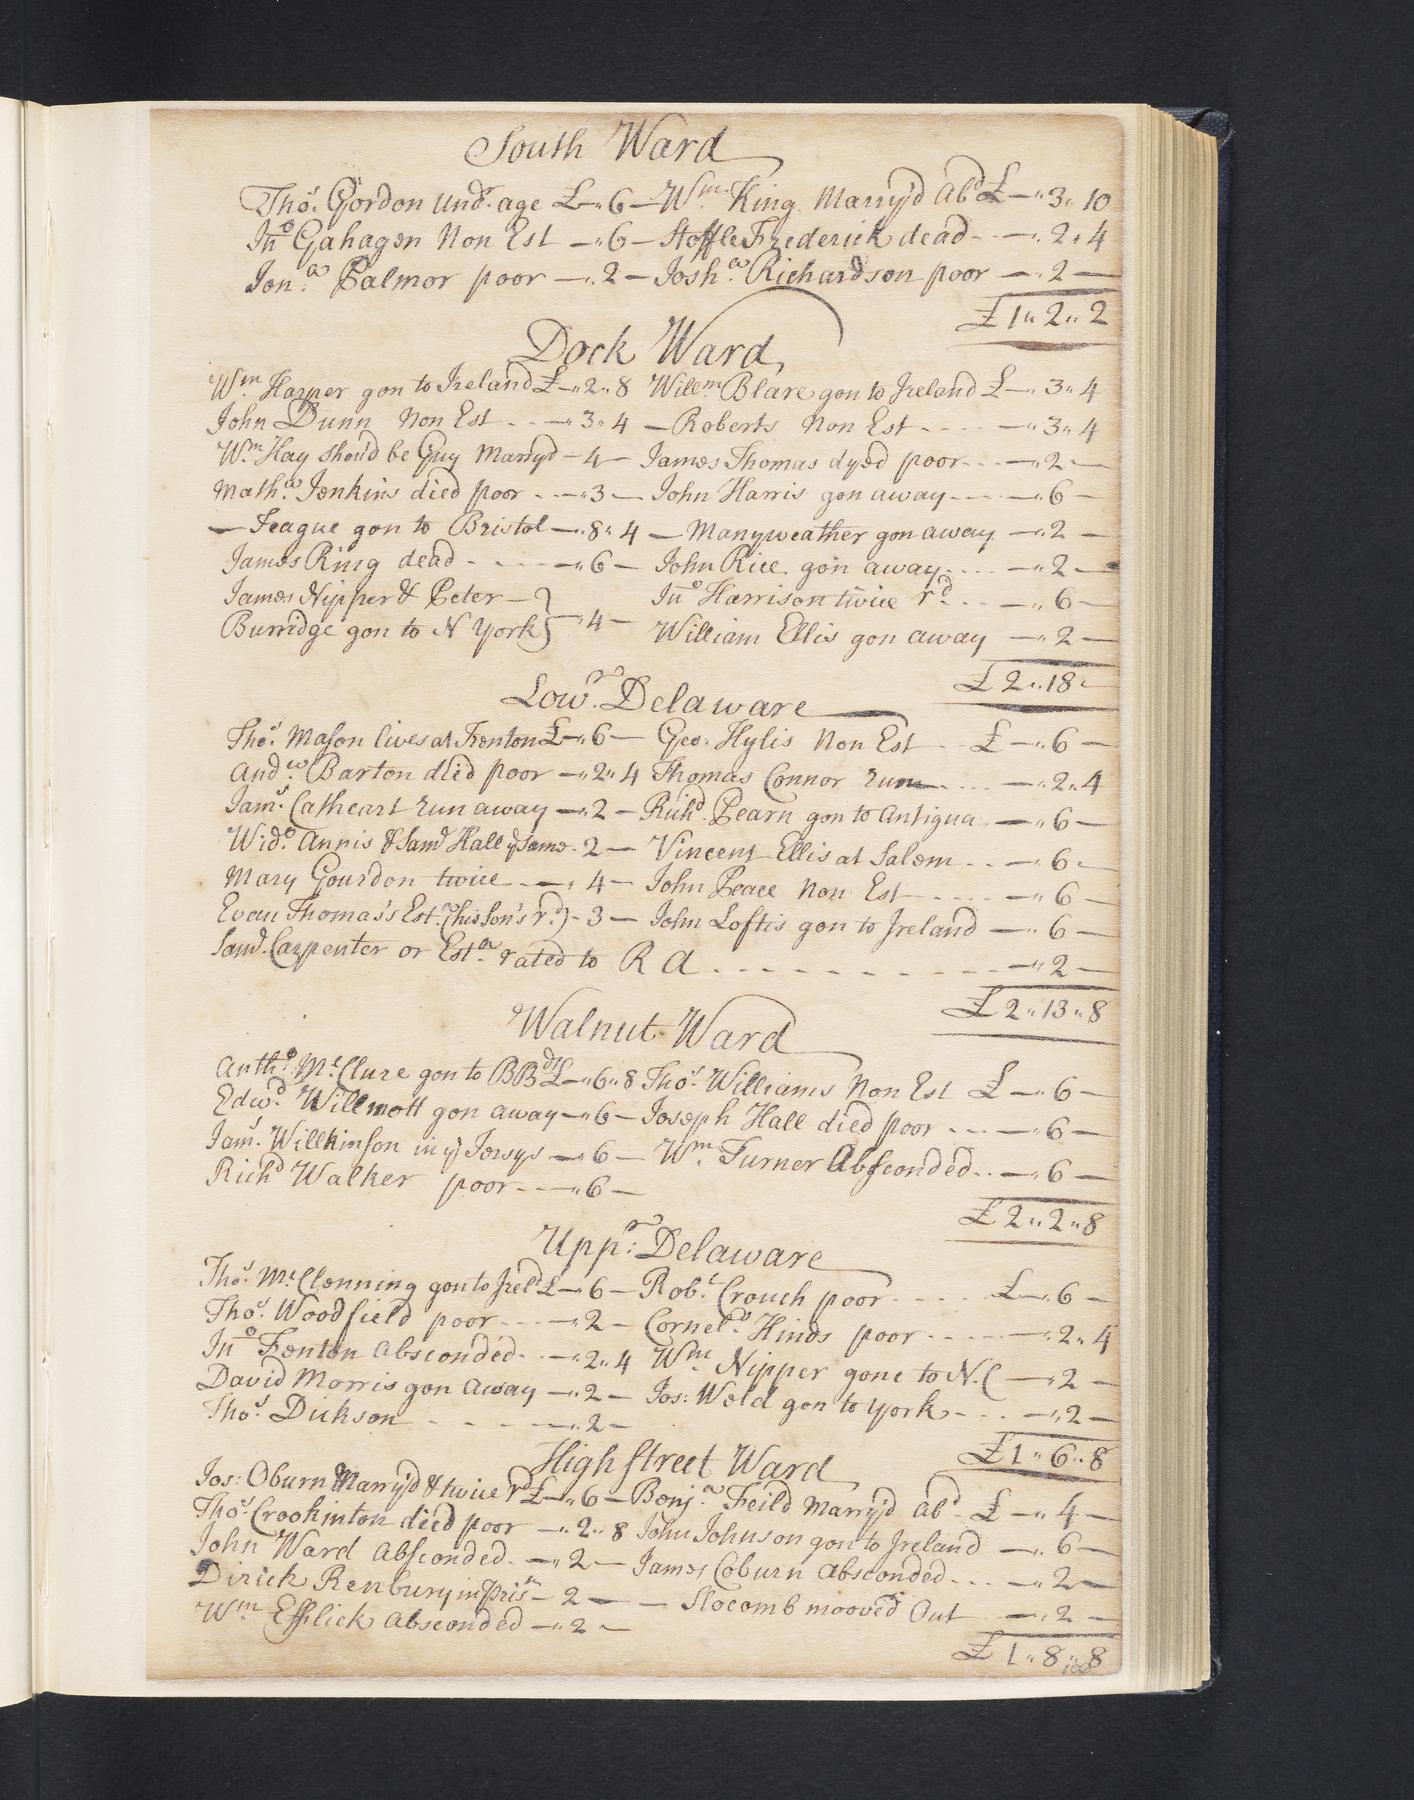 South Ward
Thos. Gordon Undr. age £-"6- Wm. King Marry'd Abd £-"3"10
Jno Gahagen Non Est -"6- Stoffle Frederick dead - -"2"4
Jona. Palmor poor -"2- Josha. Richardson poor -"2-
£1"2"2
Dock Ward
Wm Harper gon to Ireland £-"2"8 Willm. Blare gon to Ireland £-"3"4
John Dunn Non Est - - -"3"4 - Roberts Non Est - - - -"3"4
Wm. Hay shou'd be Guy Marry'd -4- James Thomas dyed poor - - -"2-
Mathw. Jenkins died poor - - -"3- John Harris gon away - - - -"6-
- Teague gon to Bristol -"8"4 - Manyweather gon away -"2-
James Ring dead - - - -"6- John Rice gon away - - - -"2-
James Nipper & Peter - } Jno Harrison twice rd. - - -"6-
Burridge gon to N York } -"4- William Ellis gon away -"2-
£2"18"-
Lowr. Delaware
Thos. Mason lives at Trenton £-"6- Geo: Hylis Non Est - - £-"6-
Andw. Barton died poor -"2"4 Thomas Connor run - - - -"2"4
Jams. Cathcart run away -"2- Richd. Pearn gon to Antigua -"6-
Wido. Annis & Saml Hall ye same - 2- Vincent Ellis at Salem - - -"6-
Mary Gourdon twice - -"4- John Peace Non Est - - - -"6-
Evan Thomas's Esta. (his son's rd.) - 3- John Loftis gon to Ireland -"6-
Saml. Carpenter or Esta. rated to R A - - - - - - - - -"2-
£2"13"8
Walnut Ward
Antho. Mc.Clure gon to BBds £-"6"8 Thos. Williams Non Est £-"6-
Edwd. Willmott gon away -"6- Joseph Hall died poor - - -"6-
Jams. Willkinson in ye Jersys -"6- Wm. Turner Absconded - - -"6-
Richd Walker poor - - -"6-
£2"2"8
Uppr. Delaware
Thos. Mc.Clenning gon to Ireld £-"6- Robt. Crouch poor - - - - £-"6-
Thos. Woodfield poor - - - -"2- Cornels. Hinds poor - - - - -"2"4
Jno Fenton absconded - - -"2"4 Wm. Nipper gone to N. C -"2-
David Morris gon Away -"2- Jos: Weld gon to York - - - -"2-
Thos. Dickson - - - - -"2-
£1"6"8
High Street Ward
Jos: Oburn Marry'd & twice rd £-"6- Benja. Feild Marry'd Abd. £-"4-
Thos. Crookinton died poor -"2"8 John Johnson gon to Ireland -"6-
John Ward Absconded - -"2- James Coburn absconded - - - -"2-
Dirick Renbury in Prisn - 2- - Slocomb mooved Out - -"2-
Wm Efflick absconded -"2-
£1"8"8